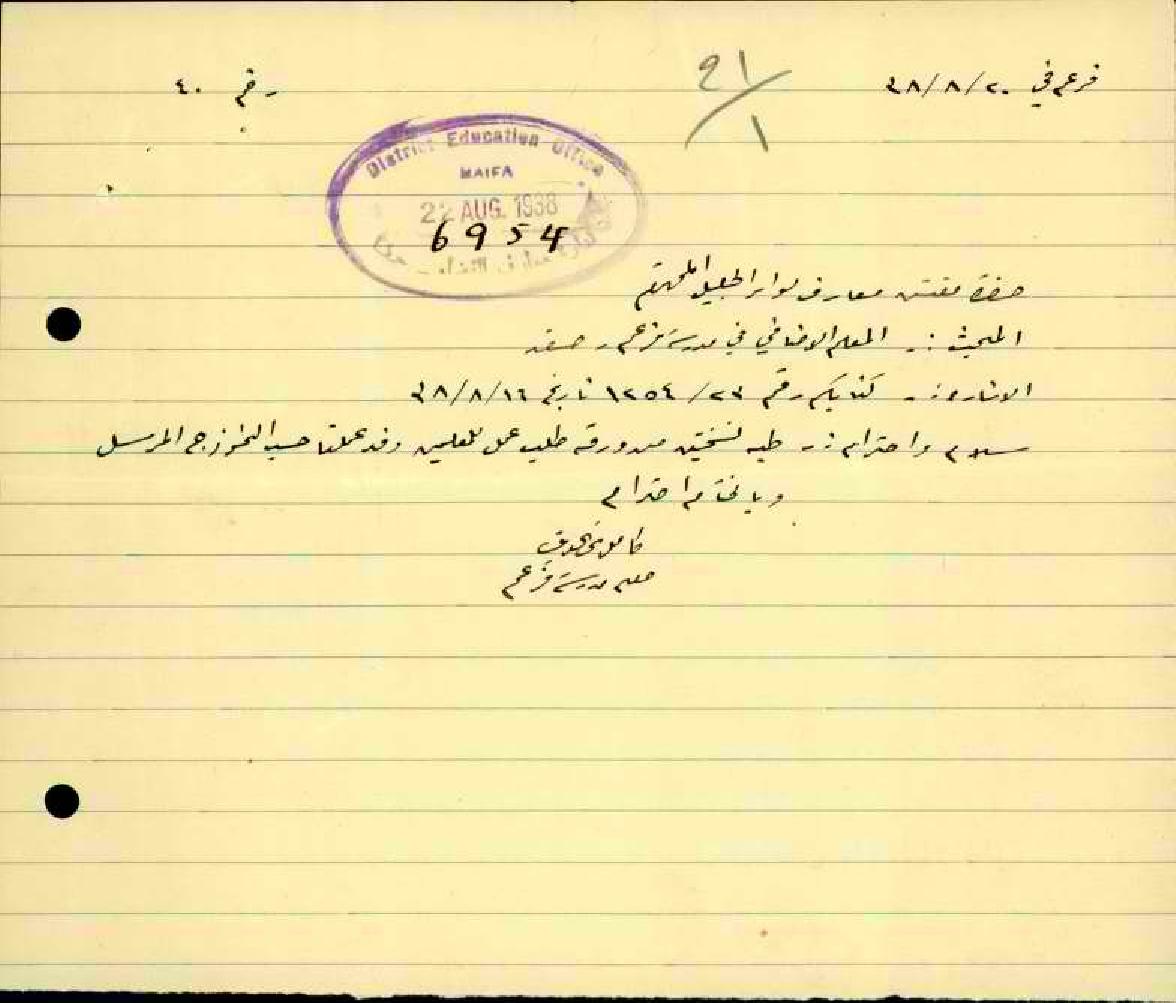 فرعم في ٢٠/٨/٣٨
رقم ٤٠
21/1
District Education Office
HAIFA
22 AUG. 1938
6954
حضرة مفتش معارف لواء الجليل المحترم
المبحث :- المعلم الاضافي في مدرسة فرعم - صفد
الاشارة :- كتابكم رقم ٢٣/١٢٥٤ تاريخ ١٦/٨/٣٨
سلام واحترام :- طيه نسختين من ورقة طلب عمل للمعلمين وقد عملتا حسب النموذج المرسل
وبالختام احترام
معلم مدرسة فرعم